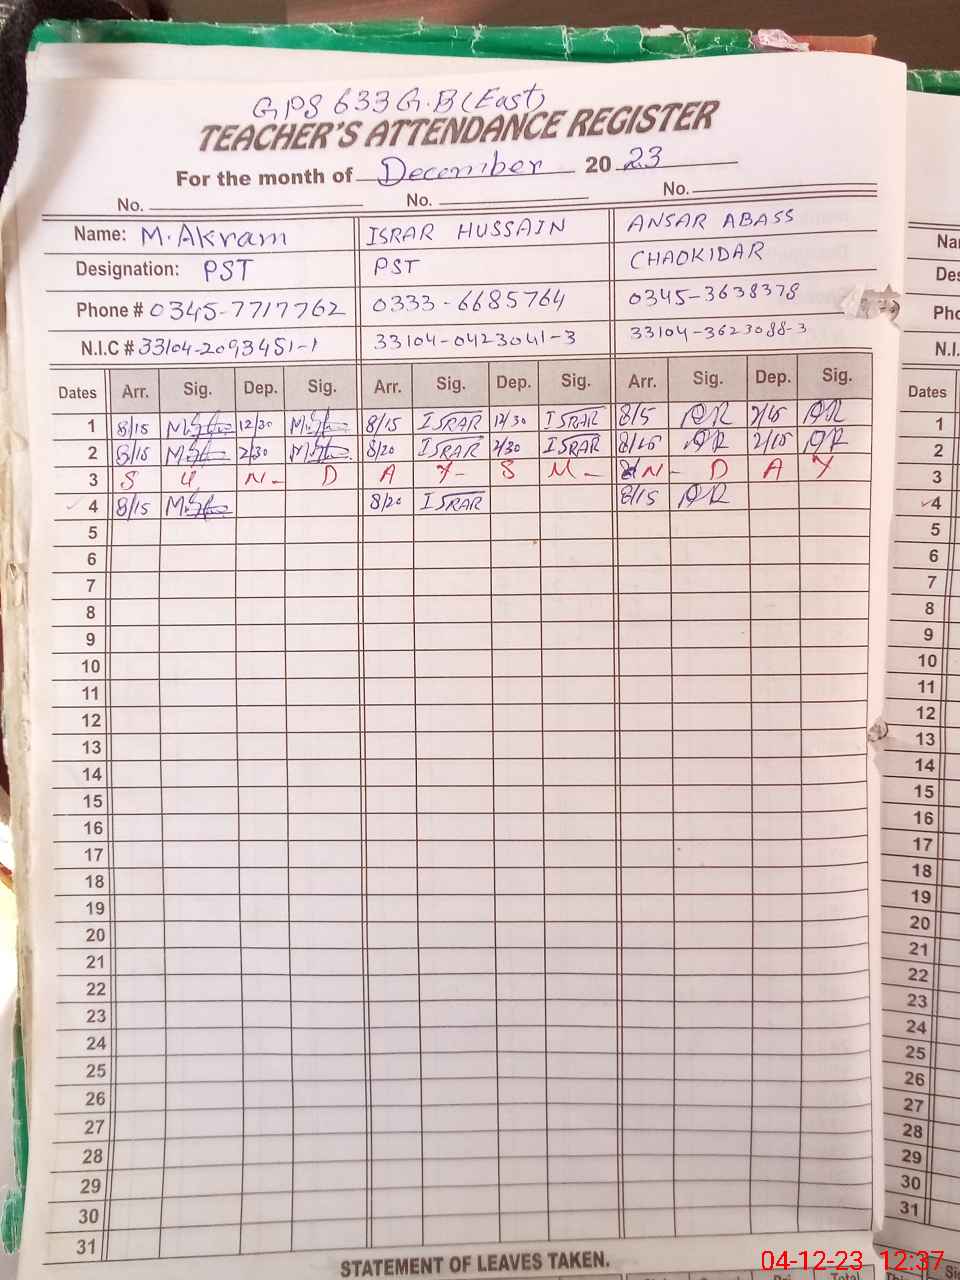 GPS 633 G.B (East)
TEACHER'S ATTENDANCE REGISTER
For the month of December 2023
No. No. No.
Name: M. Akram ISRAR HUSSAIN ANSAR ABASS
Designation: PST PST CHAOKIDAR
Phone # 0345-7717762 0333-6685764 0345-3638378
N.I.C # 33104-2093451-1 33104-0423041-3 33104-3623088-3
Dates Arr. Sig. Dep. Sig. Arr. Sig. Dep. Sig. Arr. Sig. Dep. Sig.
1 8/15 12/30 8/15 ISRAR 12/30 ISRAR 8/5
2 8/15 2/30 8/20 ISRAR 2/30 ISRAR 8/15 2/15
3 S U N - D A Y - S U N - D A Y
4 8/15 8/20 ISRAR 8/15
5
6
7
8
9
10
11
12
13
14
15
16
17
18
19
20
21
22
23
24
25
26
27
28
29
30
31
STATEMENT OF LEAVES TAKEN.
Na
Des
Pho
N.I.
Dates
1
2
3
4
5
6
7
8
9
10
11
12
13
14
15
16
17
18
19
20
21
22
23
24
25
26
27
28
29
30
31
04-12-23 12:37